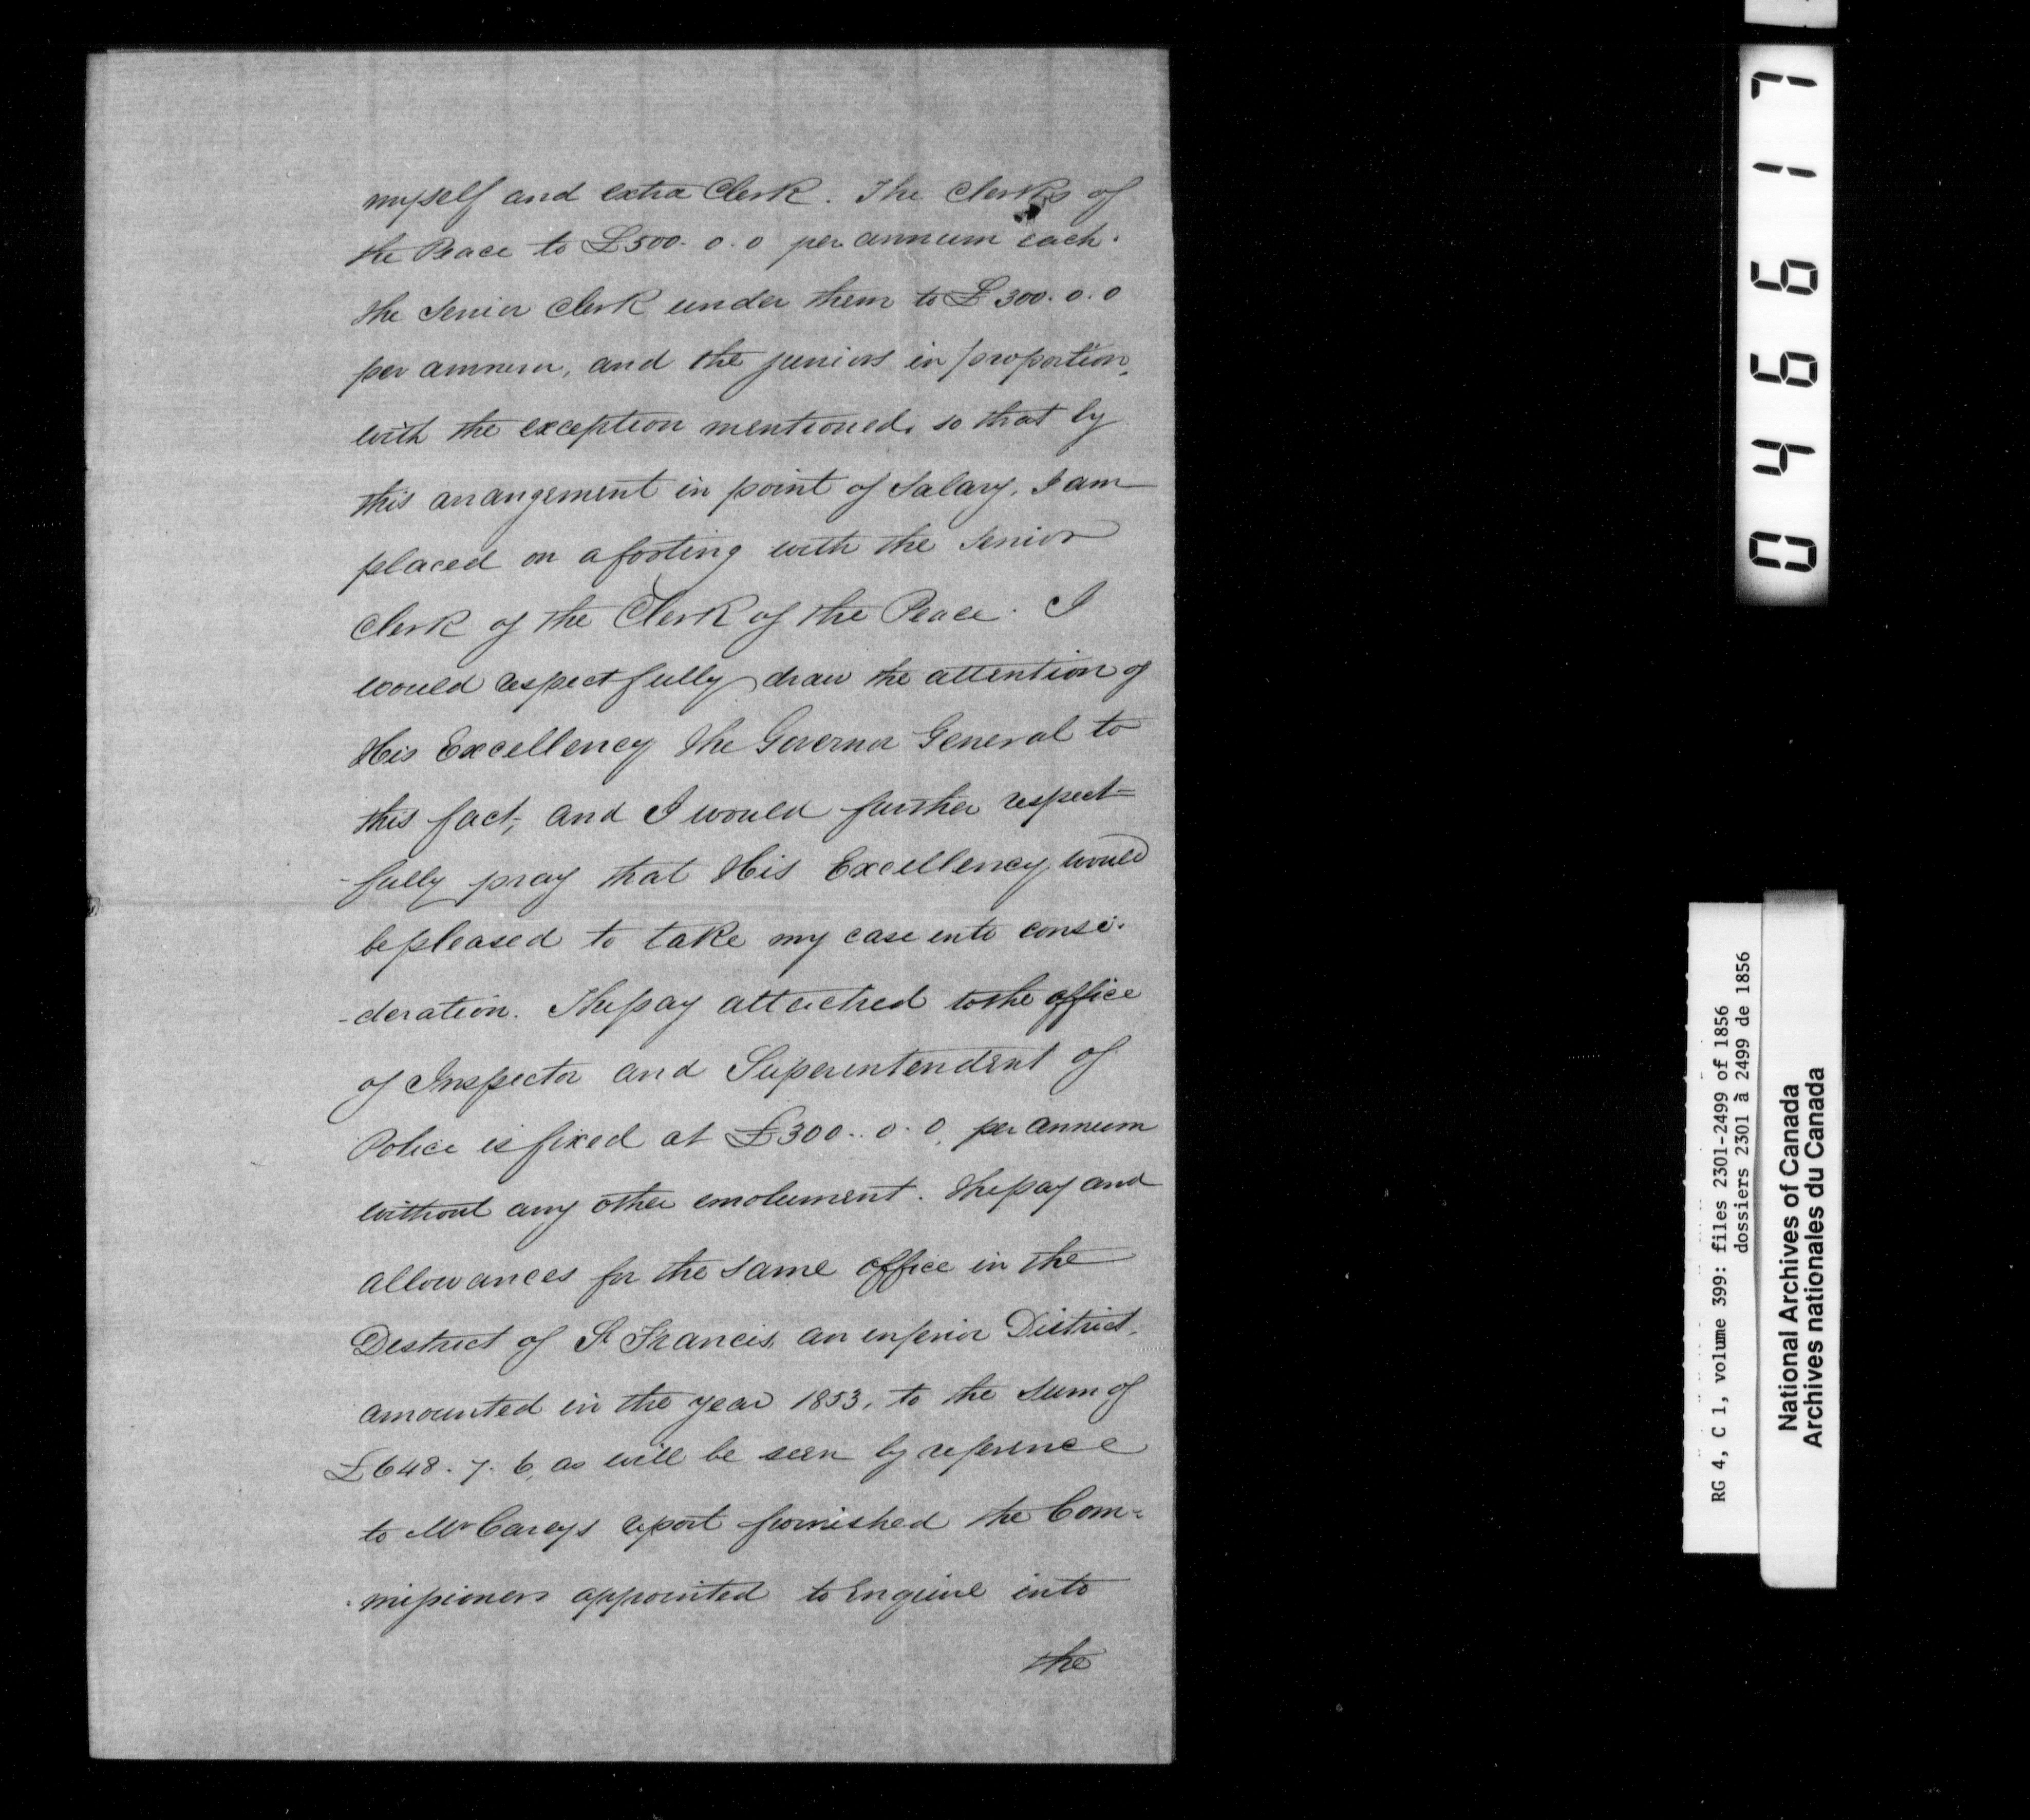 myself and extra Clerk. The Clerks of
the Peace to £500. 0. 0 per annum each.
the Senior Clerk under them to £300. 0. 0
per annum, and the juniors in proportion,
with the exception mentioned, so that by
this arrangement in point of Salary, I am
placed on a footing with the Senior
Clerk of the Clerk of the Peace. I
would respectfully draw the attention of
His Excellency the Governor General to
this fact, and I would further respect=
-fully pray that His Excellency would
be pleased to take my case into consi-
-deration. The pay attached to the office
of Inspector and Superintendent of
Police is fixed at £300. 0. 0. per annum
without any other emolument. The pay and
allowances for the same office in the
District of St Francis, an inferior District,
amounted in the year 1853, to the sum of
£648. 7. 6, as will be seen by reference
to Mr Careys report furnished the Com=
-missioners appointed to Enquire into
the
046617
RG 4, C 1, volume 399: files 2301-2499 of 1856
dossiers 2301 à 2499 de 1856
National Archives of Canada
Archives nationales du Canada